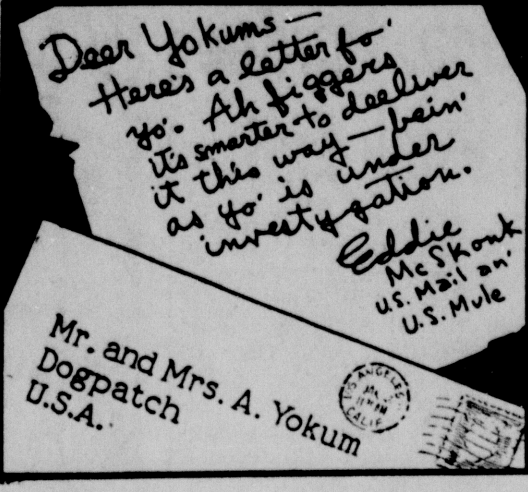 Deer Yokums —
Here's a letter fo'
yo'. Ah figgers
it's smarter to deeliver
it this way — bein'
as yo' is under
investygation.
Eddie
McSkonk
U.S. Mail an'
U.S. Mule
Mr. and Mrs. A. Yokum
Dogpatch
U.S.A.
LOS ANGELES
CALIF.